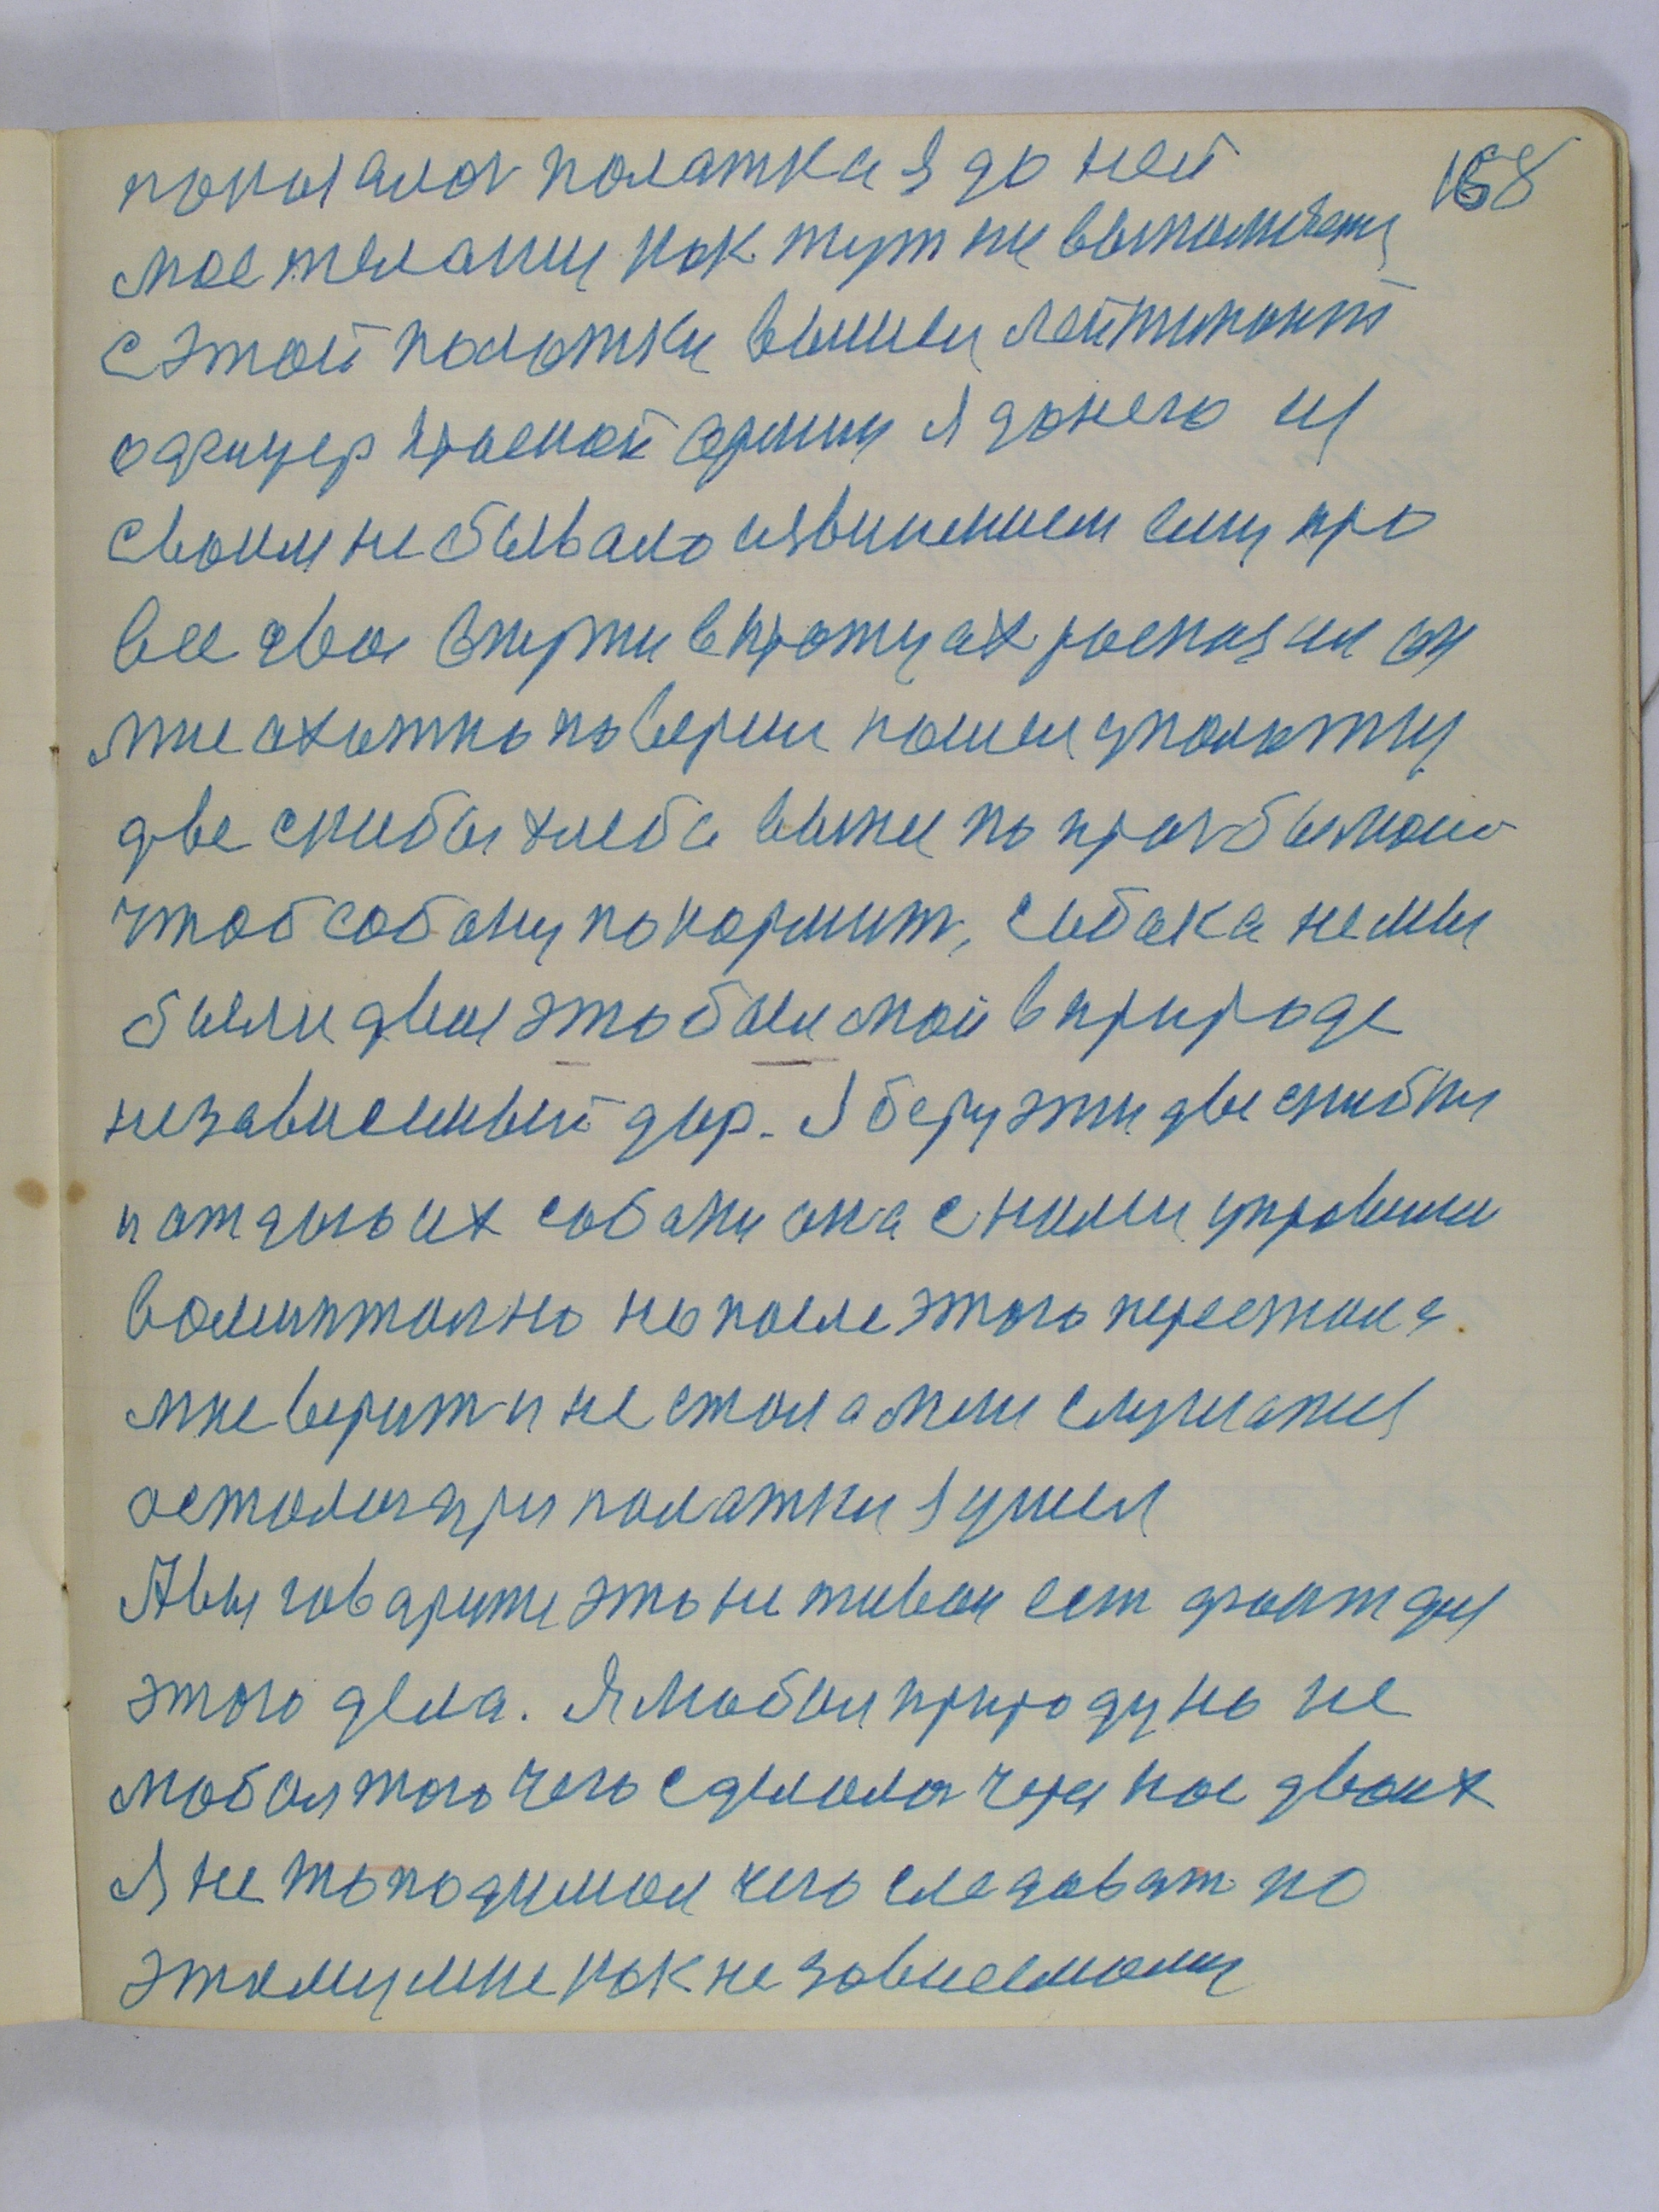 показалася палатка я до ней 168
мое желания как тут ни выполнеть
с этой палатки вышел лейтинант
офицер красной армии я до него из
своим не бывало извинением ему про
все свои в протцах росказал он
мне охотно поверил пошел у палатку
две скибы хлеба вынес попрозьбы моей
чтоб собаку покормит, собака нами
были двои это были мои в природе
независемый дар. Я беру эти две скибки
и отдаю их собаки она с ними управила
воментално но после этого перестала
мне верит и не стала мене слушатся
осталася при палатки я ушел
А вы говарите это не живой ест факт для
этого дела. Я любил природу но не
любил того чего сделалося через нас двоих
Я не то подумал чего следоват по
этому мне как независемому